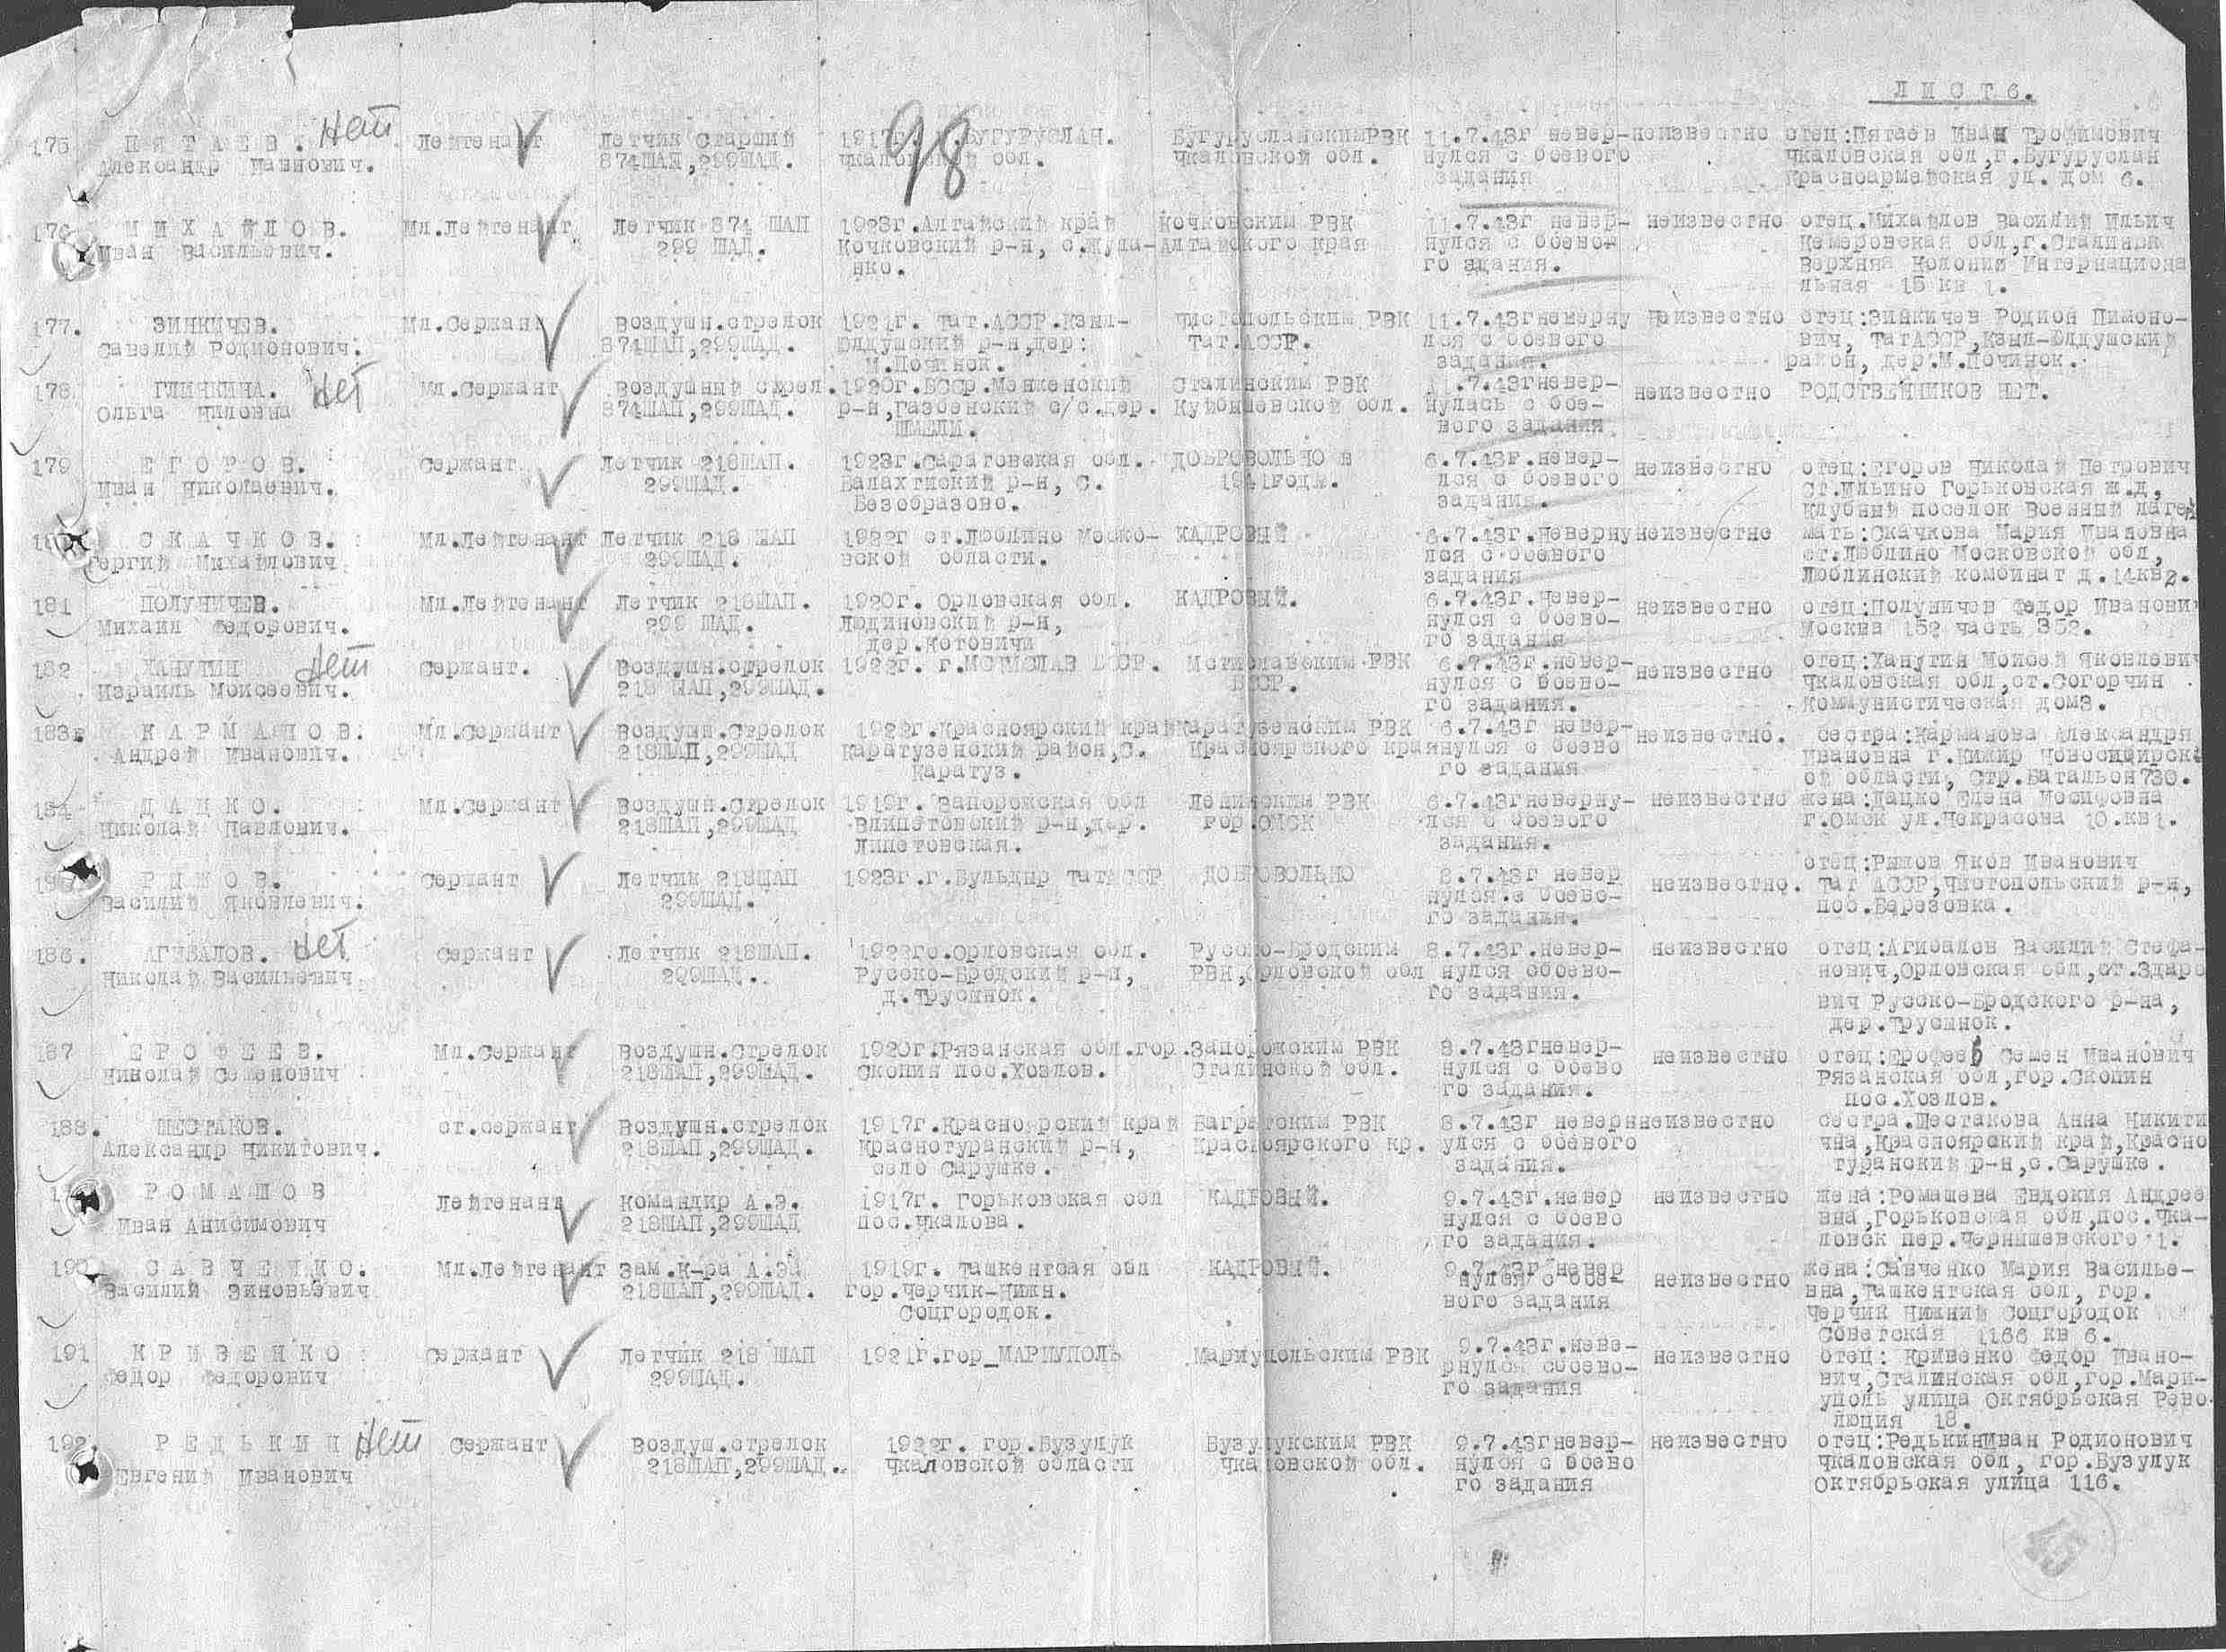 ЛИСТ 6.
98
175 ПЯТАЕВ. Нет Лейтенант Летчик Старший 1917г. БУГУРУСЛАН. Бугурусланским РВК 11.7.43г невер- неизвестно отец:Пятаев Иван Трофимович
Александр Иванович. 874ШАП,299ШАД. Чкаловской обл. Чкаловской обл. нулся с боевого Чкаловская обл,г.Бугуруслан
задания Красноармейская ул. дом 6.
176 МИХАЙЛОВ. Мл.Лейтенант Летчик 874 ШАП 1923г.Алтайский край Кочковским РВК 11.7.43г невер- неизвестно отец.Михайлов Василий Ильич
Иван Васильевич. 299 ШАД. Кочковский р-н, с.Жула- Алтайского края нулся с боево- Кемеровская обл,г.Сталинск
нко. го здания. Верхняя Колония Интернациона
льная 15 кв 1.
177. ЗИНКИЧЕВ. Мл.Сержант Воздушн.стрелок 1921г. Тат.АССР.Кзыл- Чистопольским РВК 11.7.43гневерну неизвестно отец:Зинкичев Родион Пимоно-
Савелий Родионович. 874ШАП,299ШАД. Юлдушский р-н,дер: Тат.АССР. лся с боевого вич, ТатАССР,Кзыл-Юлдушский
М.Починок. задания. район, дер.М.Починок.
178 ГЛИЧКИНА. Нет Мл.Сержант Воздушный стрел. 1920г.БССР. Сталинским РВК 11.7.43гневер- неизвестно РОДСТВЕННИКОВ НЕТ.
Ольга Ниловна 874ШАП,299ШАД. р-н, с/с.дер. Куйбышевской обл. нулась с бое-
ШМЕЛИ. вого задания
179 ЕГОРОВ. Сержант Летчик 218ШАП. 1923г.Саратовская обл. ДОБРОВОЛЬНО в 6.7.43г.невер- неизвестно отец:Егоров Николай Петрович
Иван Николаевич. 299ШАД. Балахтиский р-н, с. 1941году. лся с боевого ст.Ильино Горьковская ж.д,
Безобразово. задания. клубный поселок Военный лаге
СКАЧКОВ. Мл.Лейтенант Летчик 218 ШАП 1922г ст.Люблино Моско- КАДРОВЫЙ 6.7.43г.Неверну неизвестно мать:Скачкова Мария Ивановна
Гергий Михайлович 299ШАД. вской области. лся с боевого ст.Люблино Московской обл,
задания Люблинский комбинат д.14кв2.
181 ПОЛУНИЧЕВ. Мл.Лейтенант Летчик 218ШАП. 1920г. Орловская обл. КАДРОВЫЙ. 6.7.43г.Невер- неизвестно отец:Полуничев Федор Иванович
Михаил Федорович. 299 ШАД. Людиновский р-н, нулся с боево- Москва 152 часть 352.
дер.Котовичи го задания
182 ХАНУТИН Нет Сержант. Воздушн.стрелок 1922г. г.МСТИСЛАВ БССР. Мстиславским РВК 6.7.43г.невер- неизвестно отец:Ханутин Моисей Яковлевич
Израиль Моисеевич. 218 ШАП,299ШАД. БССР. нулся с боево- Чкаловская обл,ст.Согорчин
го задания. Коммунистическая дом3.
183. КАРМАНОВ. Мл.Сержант Воздушн.Стрелок 1922г.Красноярский край Каратузенским РВК 6.7.43г невер- неизвестно. сестра:Карманова Александря
Андрей Иванович. 218ШАП,299ШАД Каратузенский район,с. Красноярского края нулся с боево Ивановна г.Кимир Новосибирск
Каратуз. го задания ой области, Стр.Батальон 730.
184 ДАЦКО. Мл.Сержант Воздушн.Стрелок 1919г. Запорожская обл Ленинским РВК 6.7.43гневерну- неизвестно жена:Дацко Елена Иосифовна
Николай Павлович. 218ШАП,299ШАД Влипетовский р-н,дер. гор.ОМСК лся с боевого г.Омск ул.Некрасова 10.кв1.
Липетовская. задания.
РЫЖОВ. Сержант Летчик 218ШАП 1923г.г.Бульдыр ТатАССР ДОБРОВОЛЬНО 8.7.43г невер неизвестно. отец:Рыжов Яков Иванович
Василий Яковлевич. 299ШАД. нулся.с боево- Тат АССР,Чистопольский р-н,
го задания. пос.Березовка.
186. АГИБАЛОВ. Нет Сержант Летчик 218ШАП. 1922го.Орловская обл. Русско-Бродским 8.7.43г.невер- неизвестно отец:Агибалов Василий Стефа-
Николай Васильевич 299ШАД. Русско-Бродский р-н, РВК,Орловской обл нулся сбоево- нович,Орловская обл,ст.Здаро
д.Трусинок. го задания. вич Русско-Бродского р-на,
дер.Трусинок.
187 ЕРОФЕЕВ. Мл.Сержант Воздушн.Стрелок 1920г.Рязанская обл.гор. Запорожским РВК 8.7.43гневер- неизвестно отец:Ерофеев Семен Иванович
Николай Семенович 218ШАП,299ШАД. Скопин пос.Хозлов. Сталинской обл. нулся с боево Рязанская обл,гор.Скопин
го задания. пос.Хозлов.
188. ШЕСТАКОВ. ст.сержант Воздушн.стрелок 1917г.Красноярский край Баградским РВК 8.7.43г неверн неизвестно сестра.Шестакова Анна Никити
Александр Никитович. 218ШАП,299ШАД. Краснотуранский р-н, Красноярского кр. улся с боевого чна,Красноярский край,Красно
село Сарушке. задания. туранский р-н,с.Сарушке.
РОМАШОВ Лейтенант Командир А.Э. 1917г. Горьковская обл КАДРОВЫЙ. 9.7.43г.невер неизвестно жена:Ромашева Евдокия Андрее
Иван Анисимович 218ШАП,299ШАД пос.Чкалова. нулся с боево вна,Горьковская обл,пос.Чка-
го задания. ловск пер.Чернышевского 1.
190 САВЧЕНКО. Мл.Лейтенант Зам.К-ра А.Э. 1919г. Ташкентсая обл КАДРОВЫЙ. 9.7.43г невер неизвестно жена:Савченко Мария Василье-
Василий Зиновьевич 218ШАП,299ШАД. гор.Черчик-Нижн. нулся с бое- вна,Ташкентская обл, гор.
Соцгородок. вого задания Черчик Нижний Соцгородок
Советская 1166 кв 6.
191 КРИВЕНКО Сержант Летчик 218 ШАП 1921г.гор_МАРИУПОЛЬ Мариупольским РВК 9.7.43г.неве- неизвестно отец: Кривенко Федор Ивано-
Федор Федорович 299ШАД. рнулся сбоево- вич,Сталинская обл,гор.Мари-
го задания уполь улица Октябрьская Рево
люция 18.
192. РЕДЬКИН Нет Сержант Воздуш.стрелок 1922г. гор.Бузулук Бузулукским РВК 9.7.43гневер- неизвестно отец:РедькинИван Родионович
Евгений Иванович 218ШАП,299ШАД. Чкаловской области Чкаловской обл. нулся с боево Чкаловская обл, гор.Бузулук
го задания Октябрьская улица 116.
45